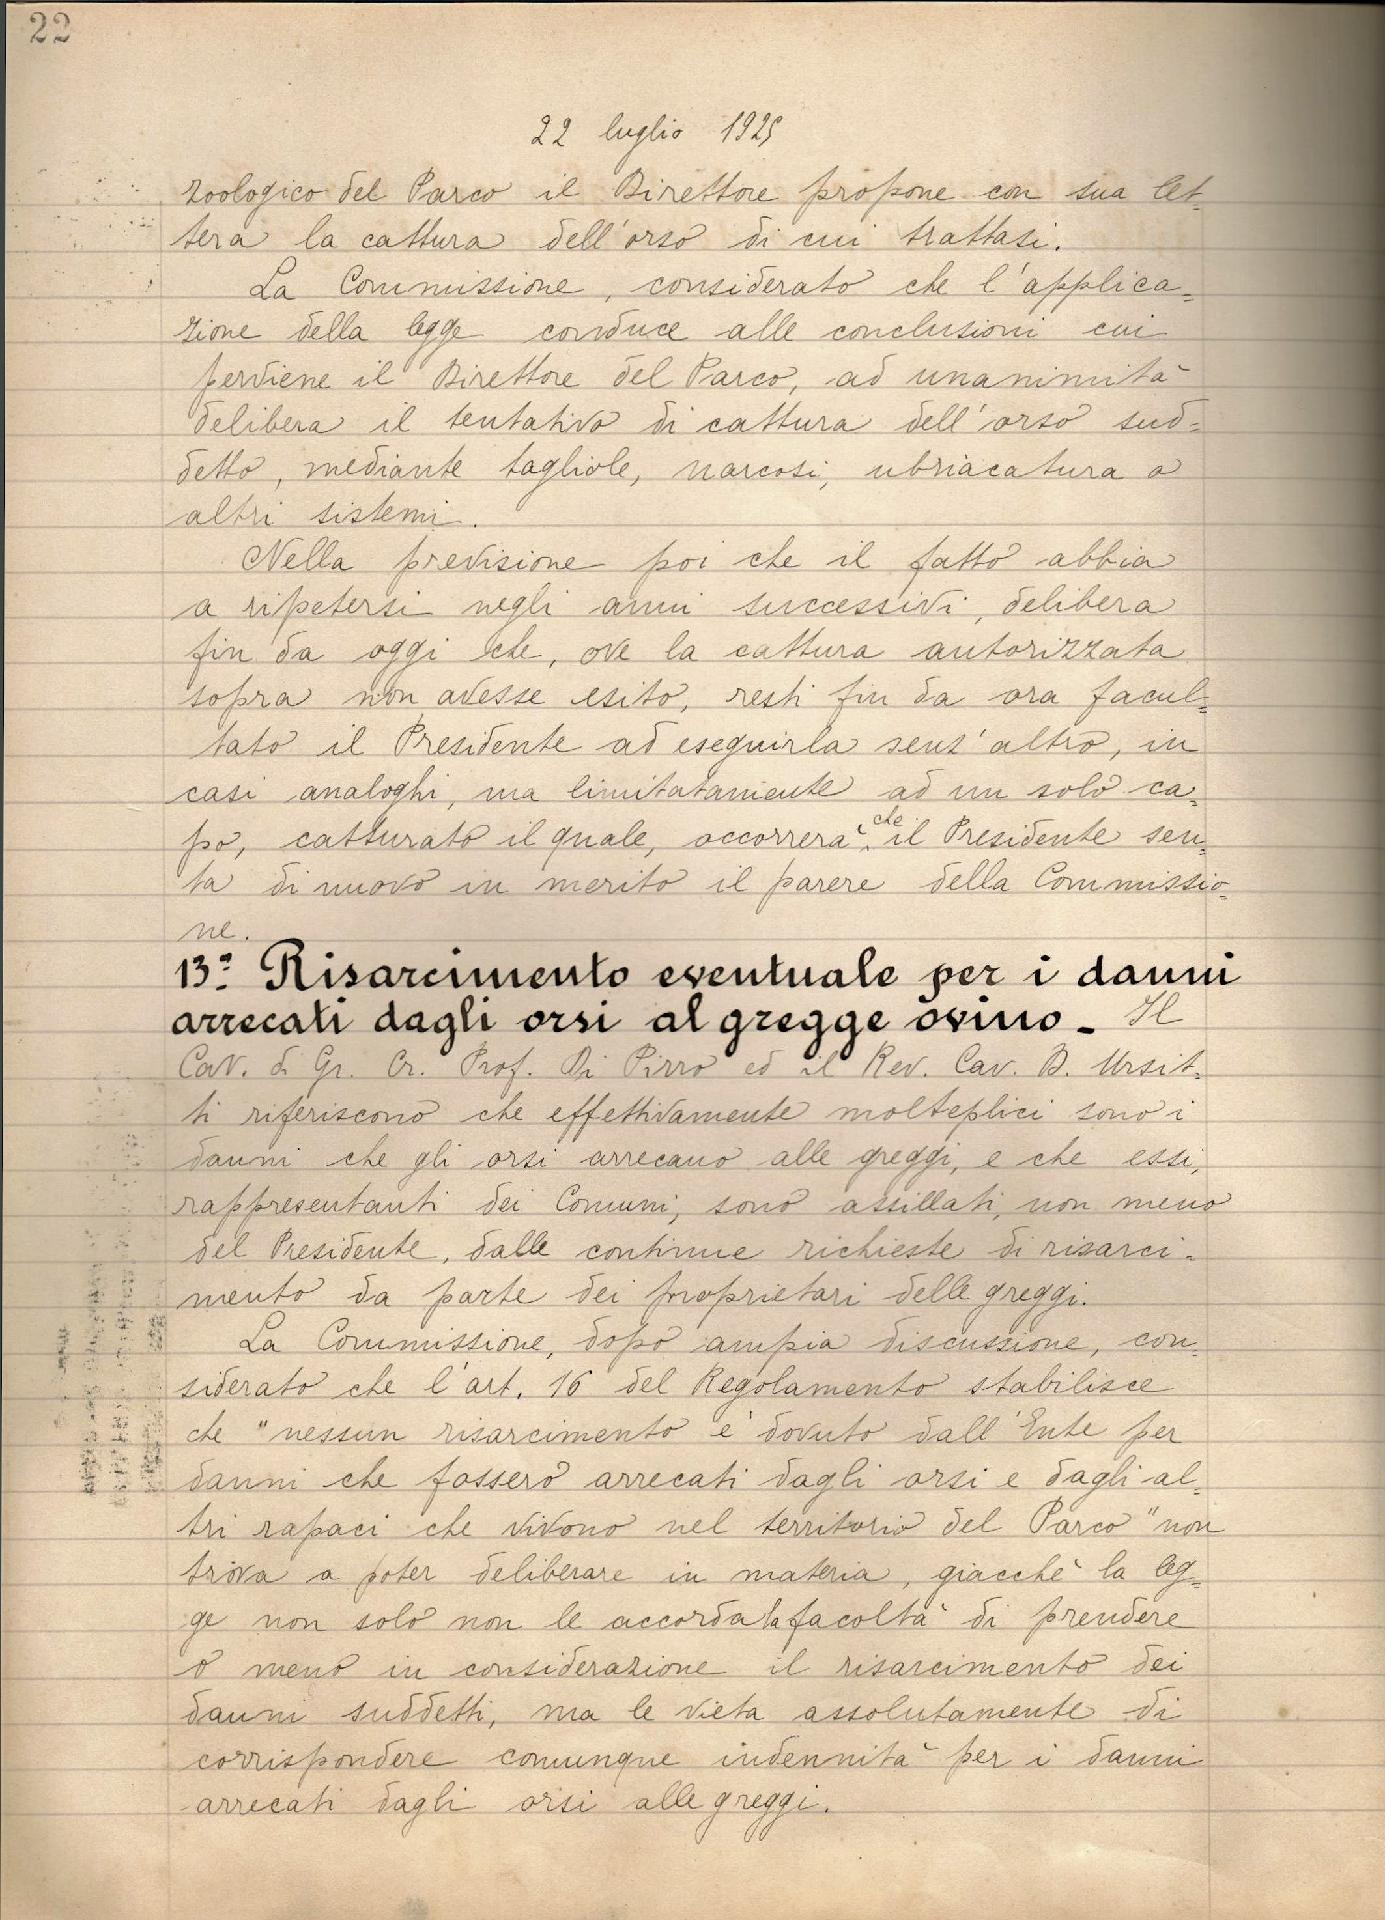 22
22 luglio 1925
zoologico del Parco il Direttore propone con sua let-
tera la cattura dell'orso di cui trattasi.
La Commissione, considerato che l'applica=
zione della legge conduce alle conclusioni cui
perviene il Direttore del Parco, ad unanimità
delibera il tentativo di cattura dell'orso sud=
detto, mediante tagliole, narcosi, ubriacatura o
altri sistemi.
Nella previsione poi che il fatto abbia
a ripetersi negli anni successivi, delibera
fin da oggi che, ove la cattura autorizzata
sopra non avesse esito, resti fin da ora facul=
tato il Presidente ad eseguirla senz'altro, in
casi analoghi, ma limitatamente ad un solo ca=
po, catturato il quale, occorrerà che il Presidente sen=
ta di nuovo in merito il parere della Commissio=
ne.
13º Risarcimento eventuale per i danni
arrecati dagli orsi al gregge ovino - Il
Cav. di Gr. Cr. Prof. Di Pirro ed il Rev. Cav. D. Ursit=
ti riferiscono che effettivamente molteplici sono i
danni che gli orsi arrecano alle greggi, e che essi,
rappresentanti dei Comuni, sono assillati, non meno
del Presidente, dalle continue richieste di risarci=
mento da parte dei proprietari delle greggi.
La Commissione, dopo ampia discussione, con=
siderato che l'art. 16 del Regolamento stabilisce
che "nessun risarcimento è dovuto dall'Ente per
danni che fossero arrecati dagli orsi e dagli al=
tri rapaci che vivono nel territorio del Parco" non
trova a poter deliberare in materia, giacchè la leg=
ge non solo non le accorda la facoltà di prendere
o meno in considerazione il risarcimento dei
danni suddetti, ma le vieta assolutamente di
corrispondere comunque indennità per i danni
arrecati dagli orsi alle greggi.